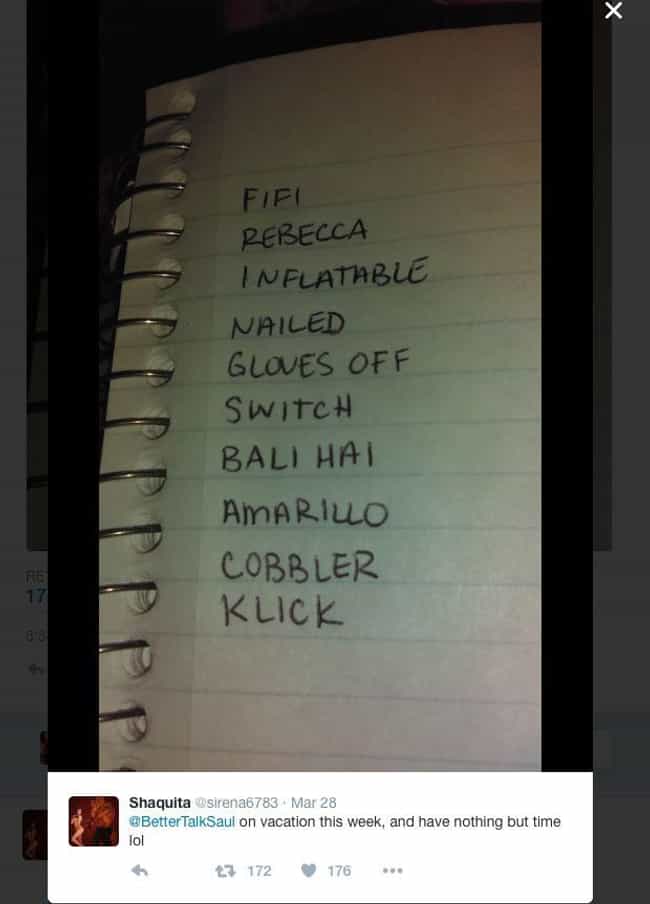 FIFI
REBECCA
INFLATABLE
NAILED
GLOVES OFF
SWITCH
BALI HAI
AMARILLO
COBBLER
KLICK
RE
17
Shaquita @sirena6783 · Mar 28
@BetterTalkSaul on vacation this week, and have nothing but time
lol
172 176